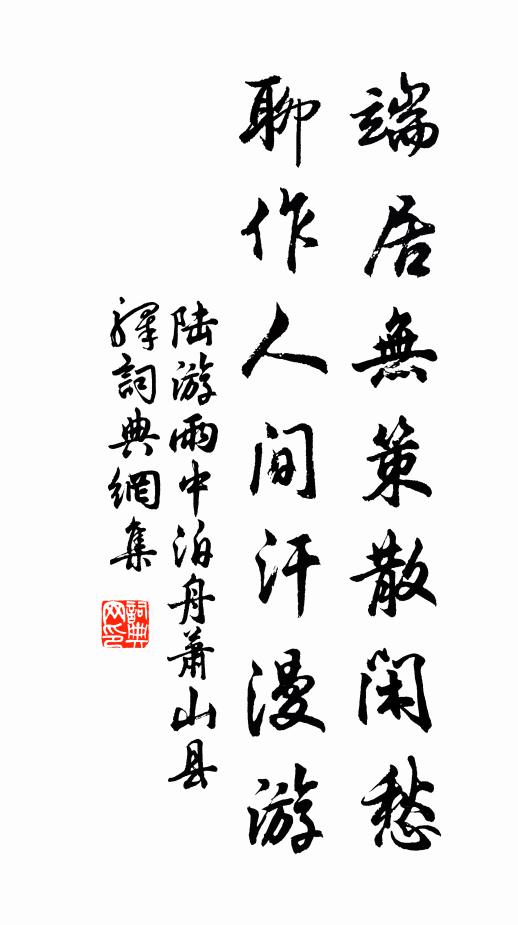 端居無策散閑愁
聊作人间汗漫游
陆游雨中泊舟萧山县
譯詞典網集
詞典
网印